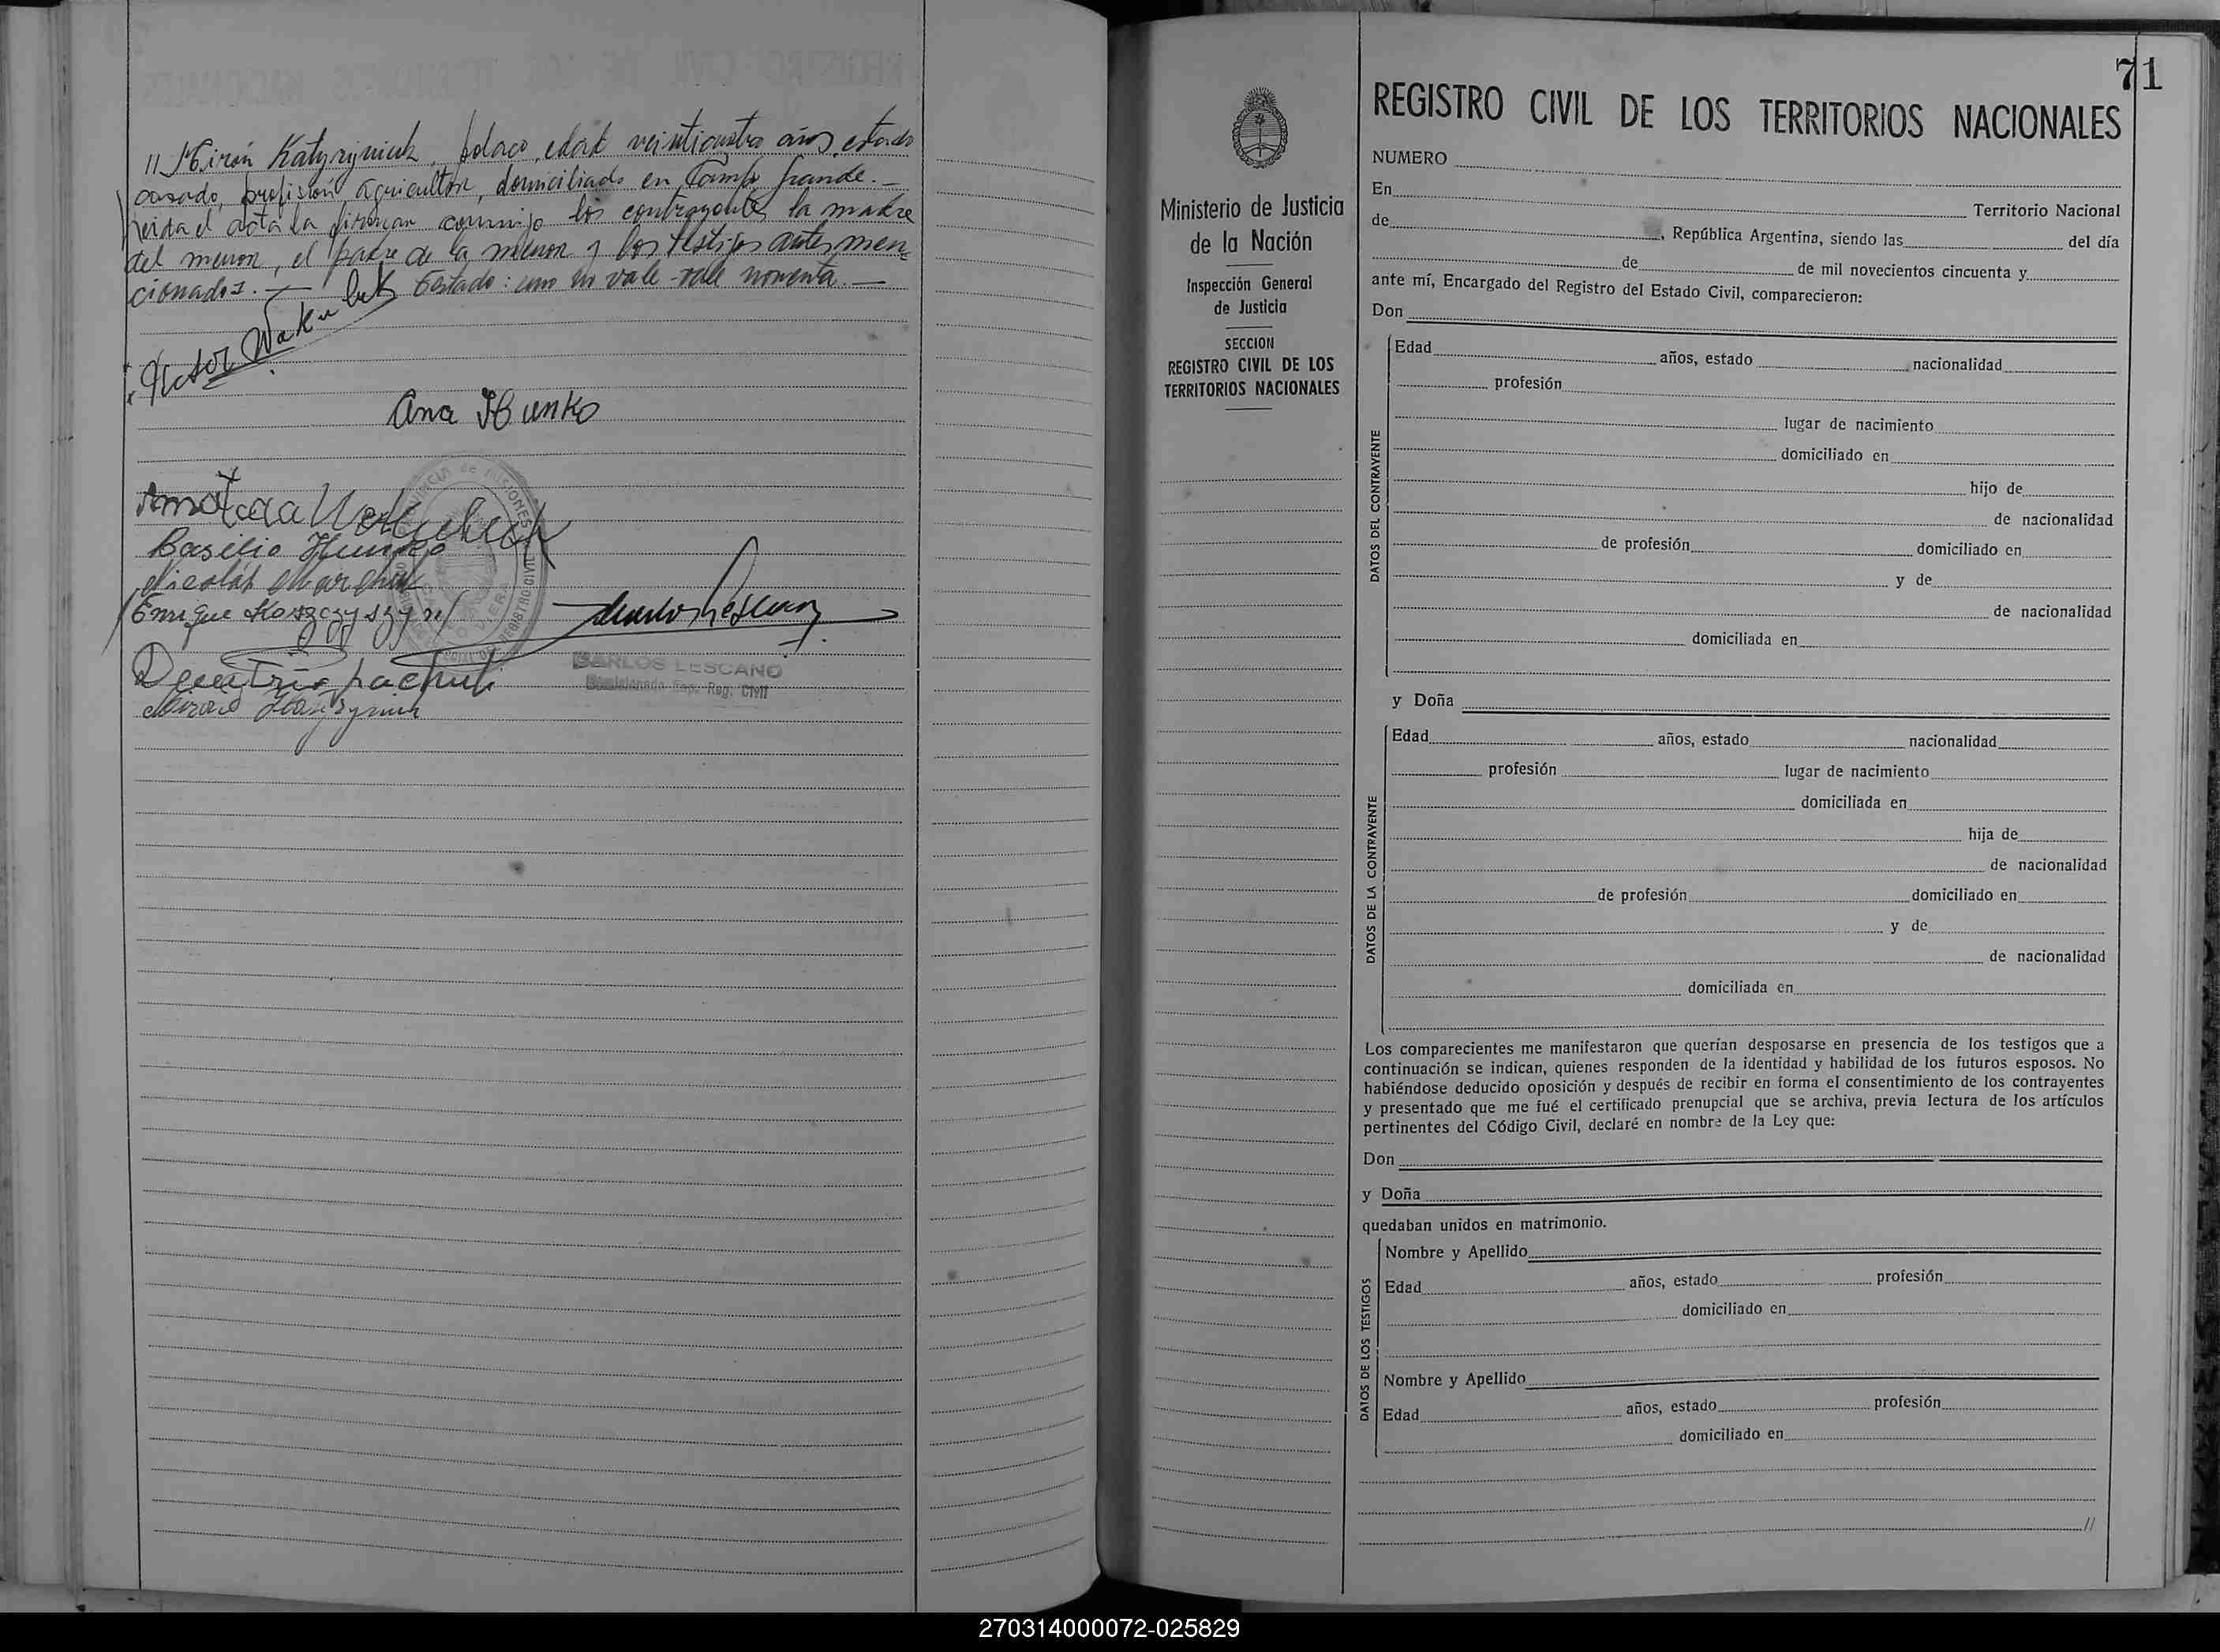 // Mirón Katyryniuk, polaco, edad veinticuatro años, estado
casado, profesión agricultor, domiciliado en Campo Grande.—
Leida el acta la firman conmigo los contrayentes, la madre
del menor, el padre de la menor y los testigos antes men=
cionados.— Testado: uno no vale - vale noventa.—
Victor Wakuluk
Ana Hunko
Basilio Hunko
Nicolás Marchuk
Enrique Koszczyszyn
Demetrio
CARLOS LESCANO
Reg. Civil
PROVINCIA de MISIONES
71
REGISTRO CIVIL DE LOS TERRITORIOS NACIONALES
Ministerio de Justicia
de la Nación
Inspección General
de Justicia
SECCION
REGISTRO CIVIL DE LOS
TERRITORIOS NACIONALES
NUMERO
En Territorio Nacional
de , República Argentina, siendo las del día
de de mil novecientos cincuenta y
ante mí, Encargado del Registro del Estado Civil, comparecieron:
Don
DATOS DEL CONTRAYENTE
Edad años, estado nacionalidad
profesión
lugar de nacimiento
domiciliado en
hijo de
de nacionalidad
de profesión domiciliado en
y de
de nacionalidad
domiciliada en
y Doña
DATOS DE LA CONTRAYENTE
Edad años, estado nacionalidad
profesión lugar de nacimiento
domiciliada en
hija de
de nacionalidad
de profesión domiciliado en
y de
de nacionalidad
domiciliada en
Los comparecientes me manifestaron que querían desposarse en presencia de los testigos que a
continuación se indican, quienes responden de la identidad y habilidad de los futuros esposos. No
habiéndose deducido oposición y después de recibir en forma el consentimiento de los contrayentes
y presentado que me fué el certificado prenupcial que se archiva, previa lectura de los artículos
pertinentes del Código Civil, declaré en nombre de la Ley que:
Don
y Doña
quedaban unidos en matrimonio.
DATOS DE LOS TESTIGOS
Nombre y Apellido
Edad años, estado profesión
domiciliado en
Nombre y Apellido
Edad años, estado profesión
domiciliado en
//
270314000072-025829